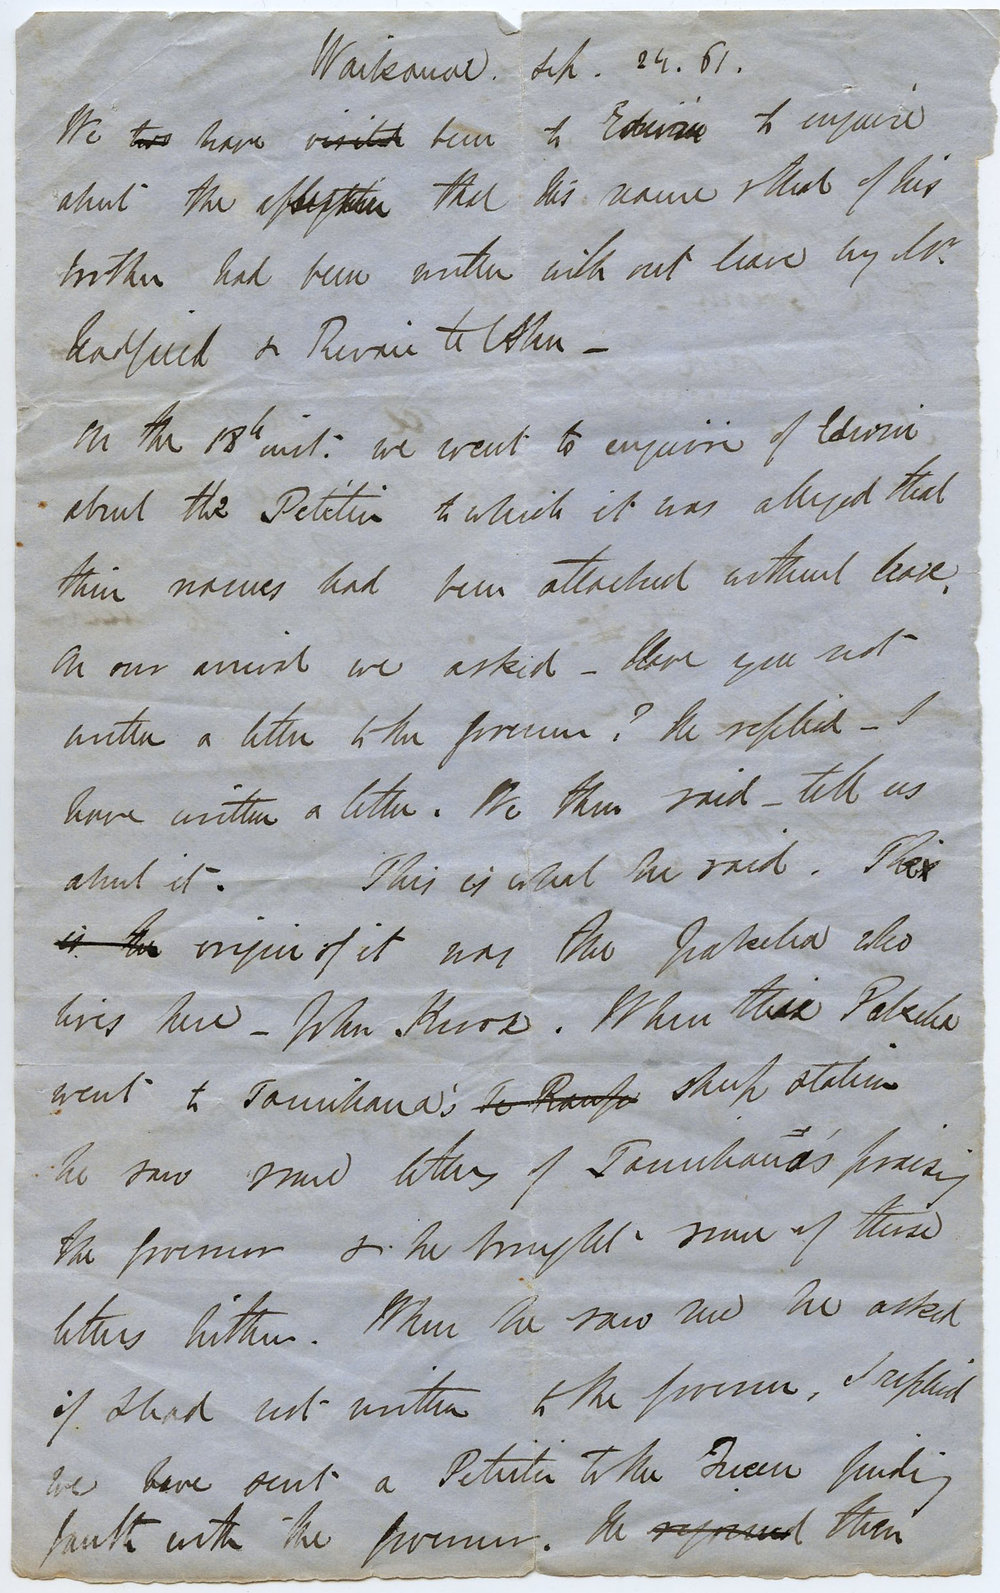 Waikanae. Sep. 24. 61.
We have been to Edwin to enquire
about the that his name & that of his
brother had been written with out leave by Mr
Hadfield & Riwai te Ahu –
On the 18th inst: we went to enquire of Edwin
about the Petition to which it was alleged that
their names had been attached without leave.
On our arrival we asked – Have you not
written a letter to the governor? He replied – I
have written a letter. We then said – tell us
about it. This is what he said. The
is the origin of it was the pakeha who
lives here – John Knox. When this Pakeha
went to Tamihana's Te Raupo sheep station
he saw some letters of Tamihana's praising
the governor & he brought some of these
letters hither. When he saw me he asked
if I had not written to the governor, I replied
we have sent a Petition to the Queen finding
fault with the governor. He rejoined then